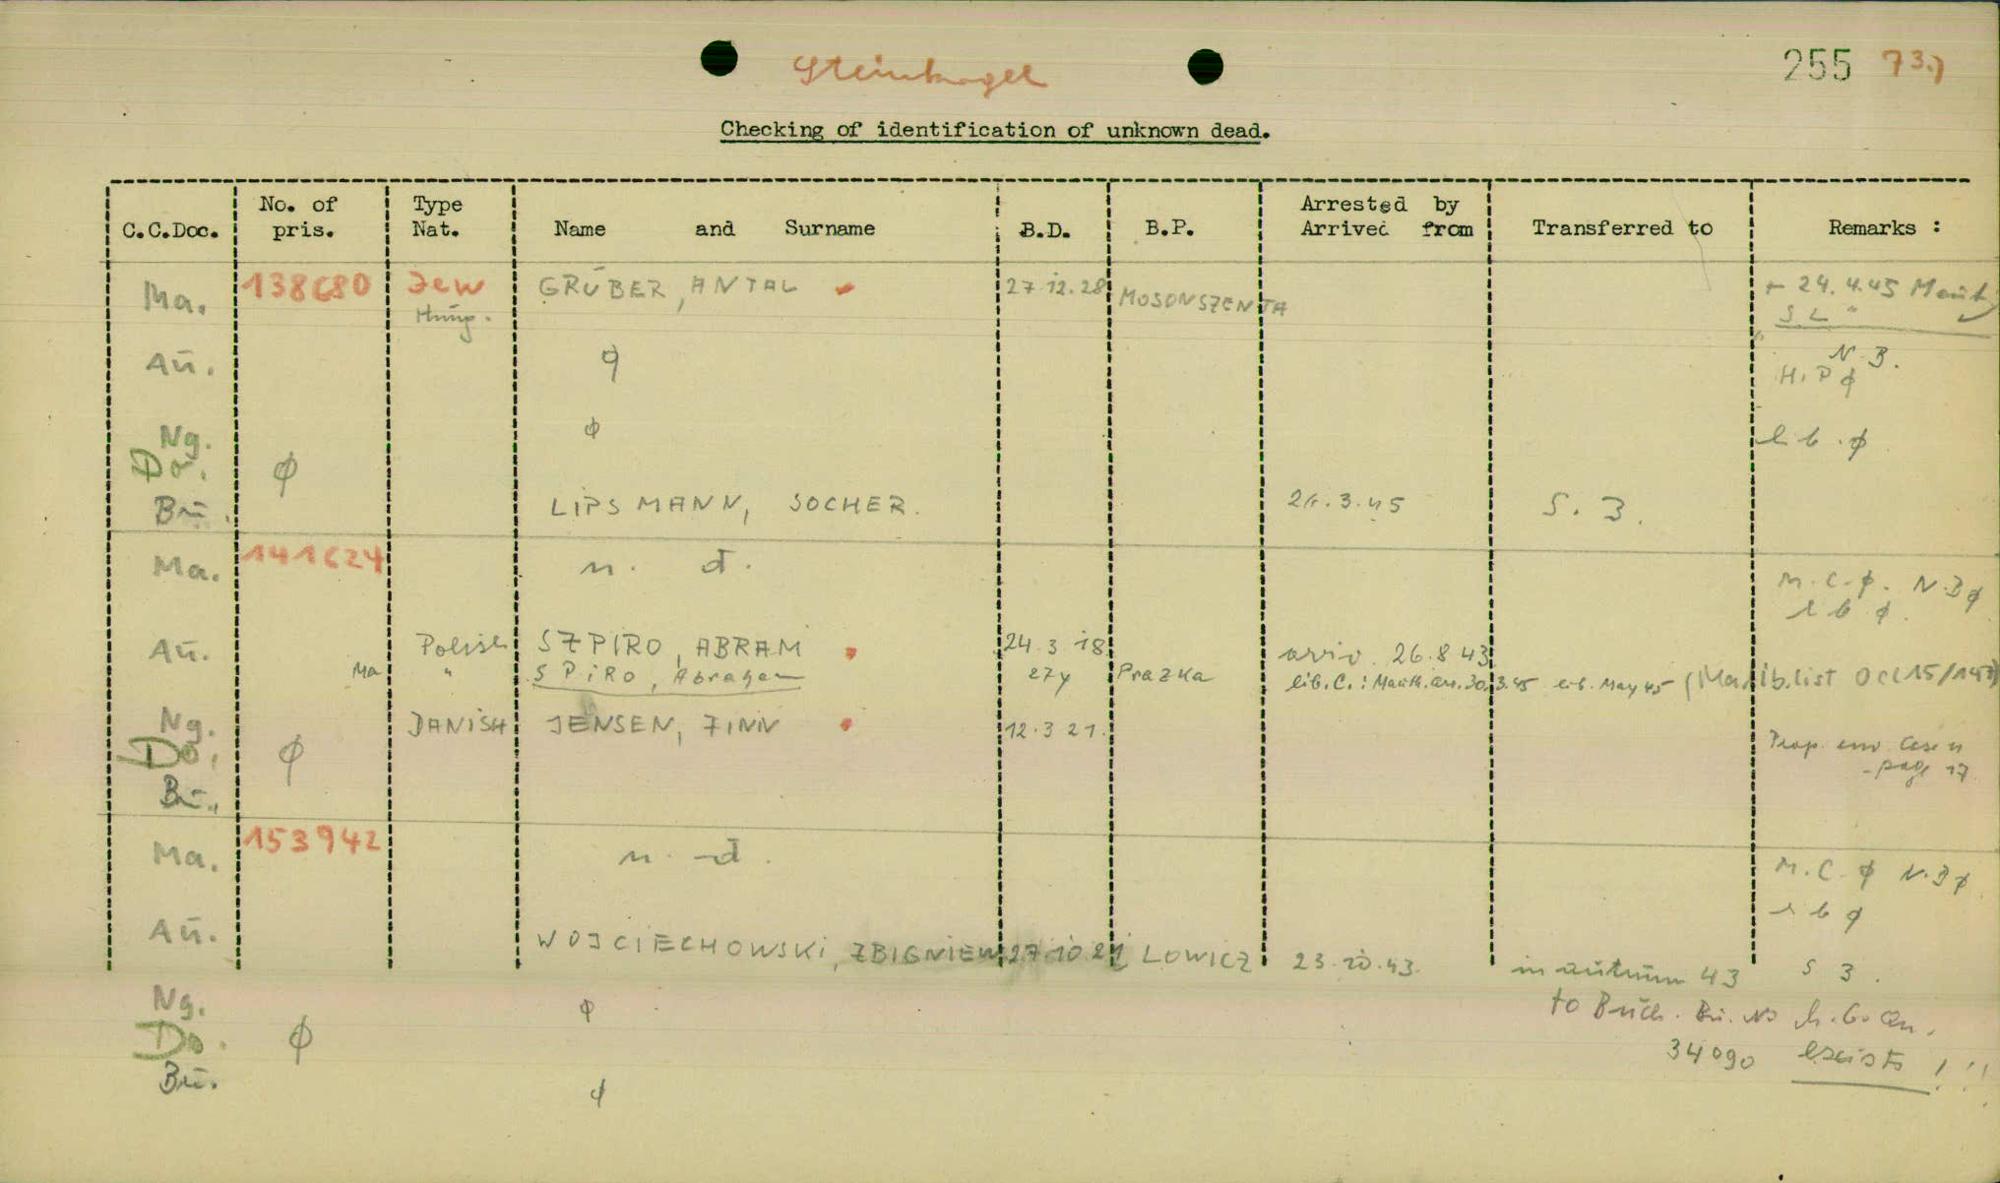 Steinkogel
255 73.)
Checking of identification of unknown dead.
C.C.Doc. No. of pris. Type Nat. Name and Surname B.D. B.P. Arrested by Arrived from Transferred to Remarks :
Ma. 138680 Jew GRÜBER, ANTAL 27.12.28 MOSONSZENTA + 24.4.45 Mauth
Hung. S L "
Au. φ N.B.
H.P φ
Ng. φ lib. φ
Do. φ
Bu. LIPSMANN, SOCHER. 26.3.45 S. 3.
Ma. 141624 n. d. M.C.φ. N.B φ
lib φ.
Au. Polish SZPIRO, ABRAM 24.3.18 arriv. 26.8.43
Ma " SPIRO, Abraham 27y Prazka lib. C.: Mauth. arr. 30.3.45 lib. May 45 (Ma lb. list OCC 15/143)
Ng. DANISH JENSEN, FINN 12.3.21. Prop. env. Case n
Do. φ page 17
Bu.
Ma. 153942 n. d. M.C. φ N.B φ
lib φ
Au. WOJCIECHOWSKI, ZBIGNIEW 27.10.21 LOWICZ 23.10.43. in autumn 43 S 3.
Ng. φ to Buch. Bu. No
Do. φ 34090 exists !!!
Bu. φ